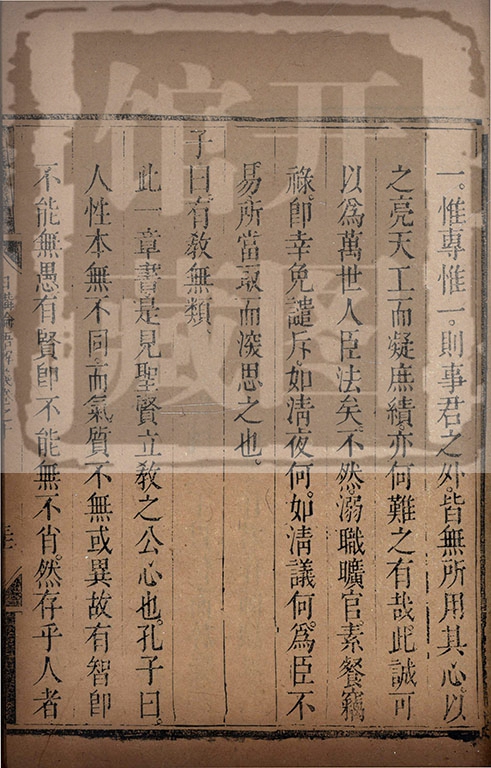 一。惟專惟一。則事君之外。皆無所用其心。以
之亮天工而凝庶績。亦何難之有哉。此誠可
以為萬世人臣法矣。不然。溺職曠官。素餐竊
祿。即幸免譴斥。如清夜何。如清議何。為臣不
易。所當敬而深思之也。
子曰。有教無類。
此一章書。是見聖賢立教之公心也。孔子曰。
人性本無不同。而氣質不無或異。故有智即
不能無愚。有賢即不能無不肖。然存乎人者